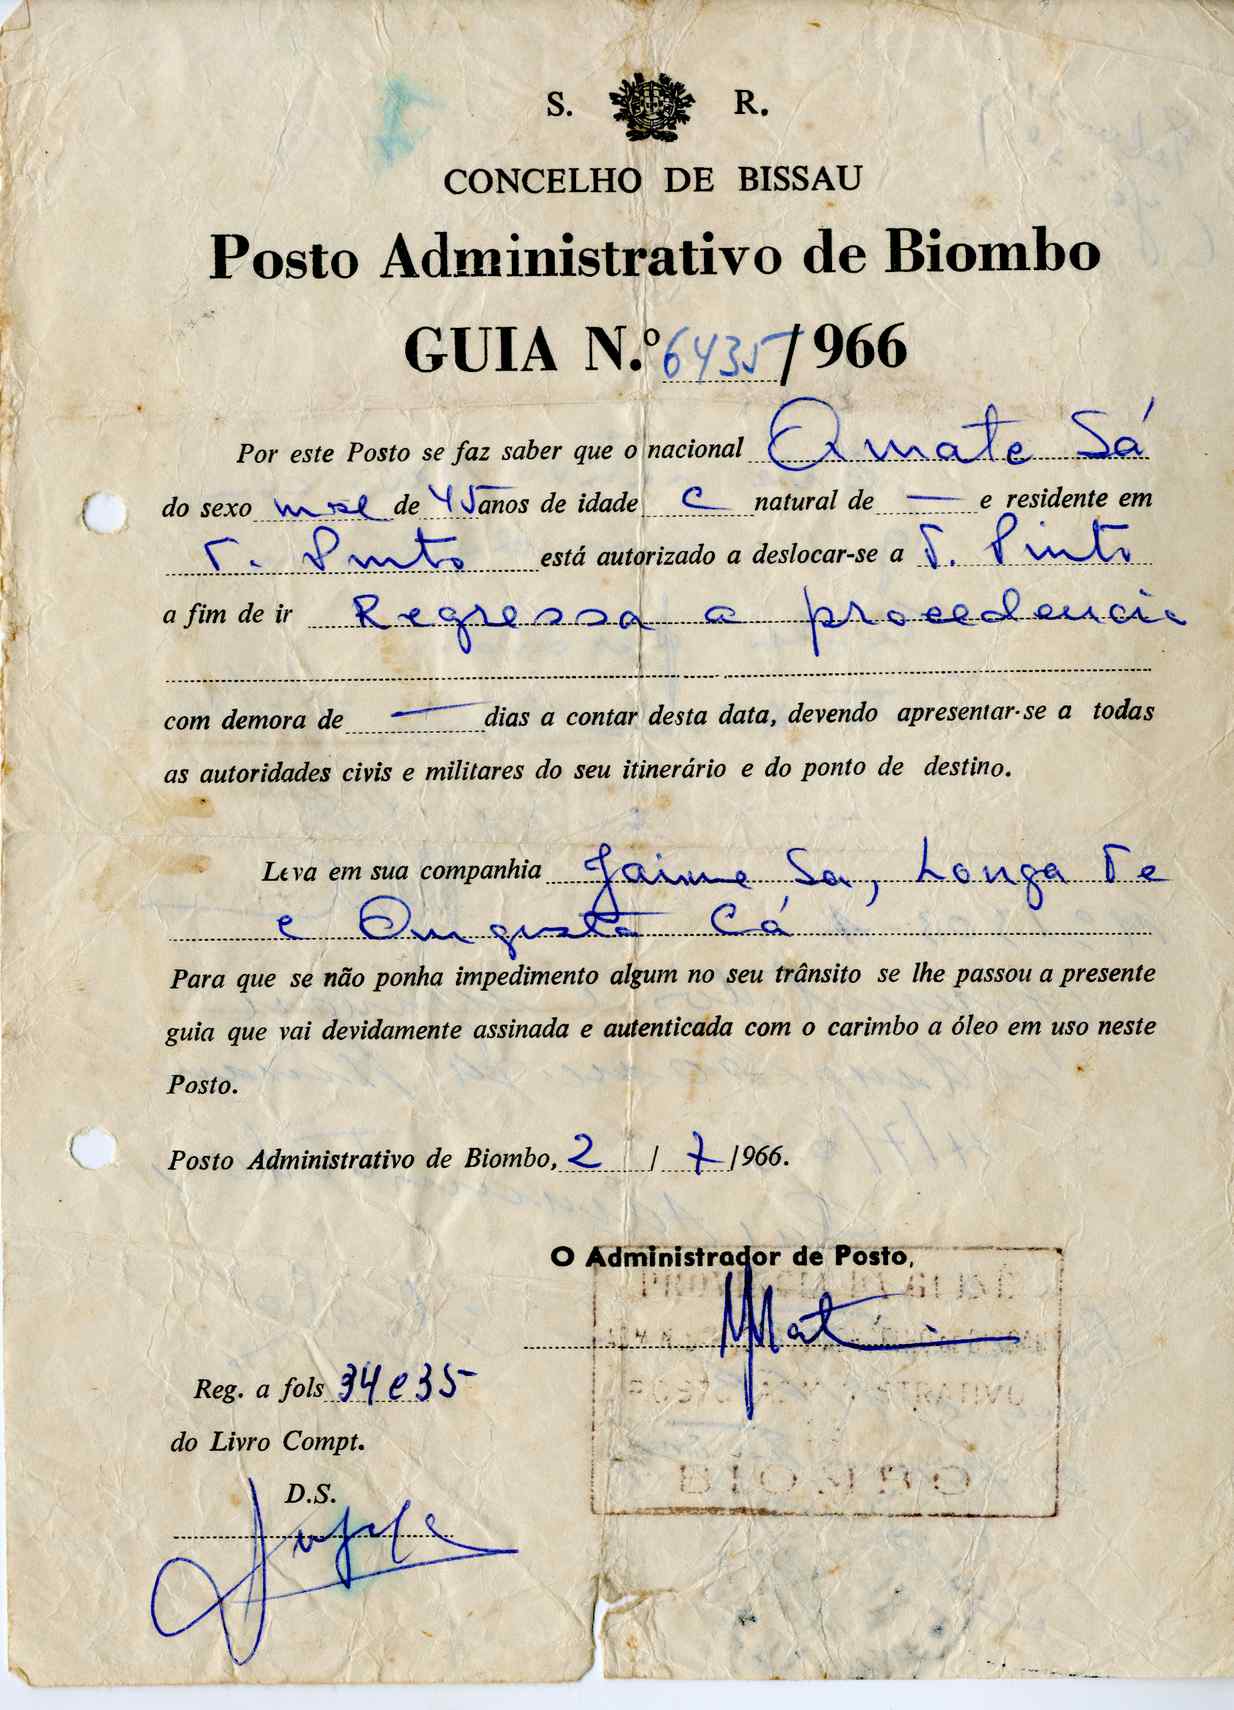 S. R.
CONCELHO DE BISSAU
Posto Administrativo de Biombo
GUIA N.º 6435/966
Por este Posto se faz saber que o nacional Amate Sá
do sexo masc de 45 anos de idade C natural de — e residente em
T. Pinto está autorizado a deslocar-se a T. Pinto
a fim de ir Regressa a procedencia
com demora de — dias a contar desta data, devendo apresentar-se a todas
as autoridades civis e militares do seu itinerário e do ponto de destino.
Leva em sua companhia Jaime Sa, Longa Te
e Augusta Cá
Para que se não ponha impedimento algum no seu trânsito se lhe passou a presente
guia que vai devidamente assinada e autenticada com o carimbo a óleo em uso neste
Posto.
Posto Administrativo de Biombo, 2 / 7 /966.
O Administrador de Posto,
Reg. a fols 34 e 35
do Livro Compt.
D.S.